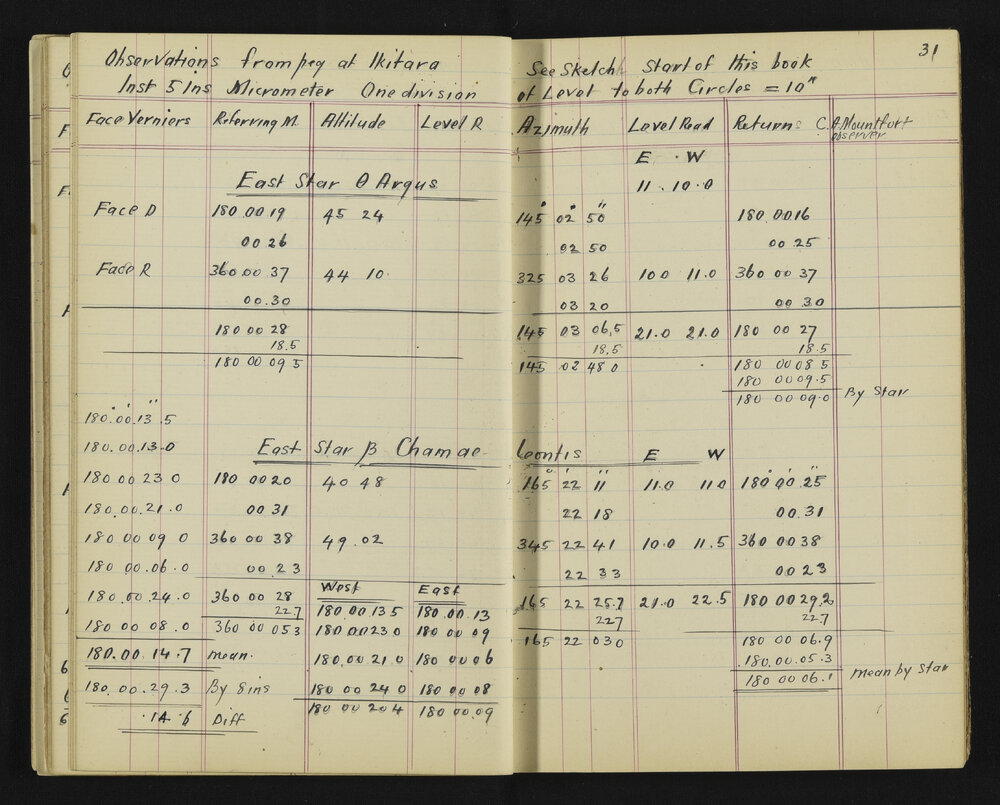 Observations from peg at Ikitara See Sketch Start of this book 31
Inst 5 Ins Micrometer One division of Level to both Circles = 10"
Face Verniers Referring M. Altitude Level R Azimuth Level Read Returns C.A. Mountfort
observer
E . W
East Star θ Argus 11 . 10.0
Face D 180.00 19 45 24 145° 02 50" 180.00 16
00 26 02 50 00 25
Face R 360 00 37 44 10. 325 03 26 10 0 11.0 360 00 37
00.30 03 20 00 30
180 00 28 145 03 06,5 21.0 21.0 180 00 27
18.5 18,5 18.5
180 00 09 5 145 02 48 0 180 00 08 5
180 00 09.5
180 00 09.0 By Star
180.00.13.5
180.00.13.0 East Star β Chamaeleontis E W
180 00 23 0 180 00 20 40 48 165° 22' 11" 11.0 11 0 180° 00' 25"
180.00.21.0 00 31 22 18 00.31
180 00 09 0 360 00 38 49.02 345 22 41 10.0 11.5 360 00 38
180 00.06.0 00 23 22 33 00 23
West East
180.00.24.0 360 00 28 180 00 13 5 180.00.13 165 22 25.7 21.0 22.5 180 00 29.2
22.7 22 7 22.7
180 00 08.0 360 00 05 3 180.00 23 0 180 00 09 165 22 03 0 180 00 06.9
180.00.14.7 mean. 180.00.21.0 180 00 06 180.00.05.3
180 00 06.1 mean by Star
180.00.29.3 By 5ins 180 00 24 0 180 00 08
180 00 20 4 180 00.09
.14.6 Diff